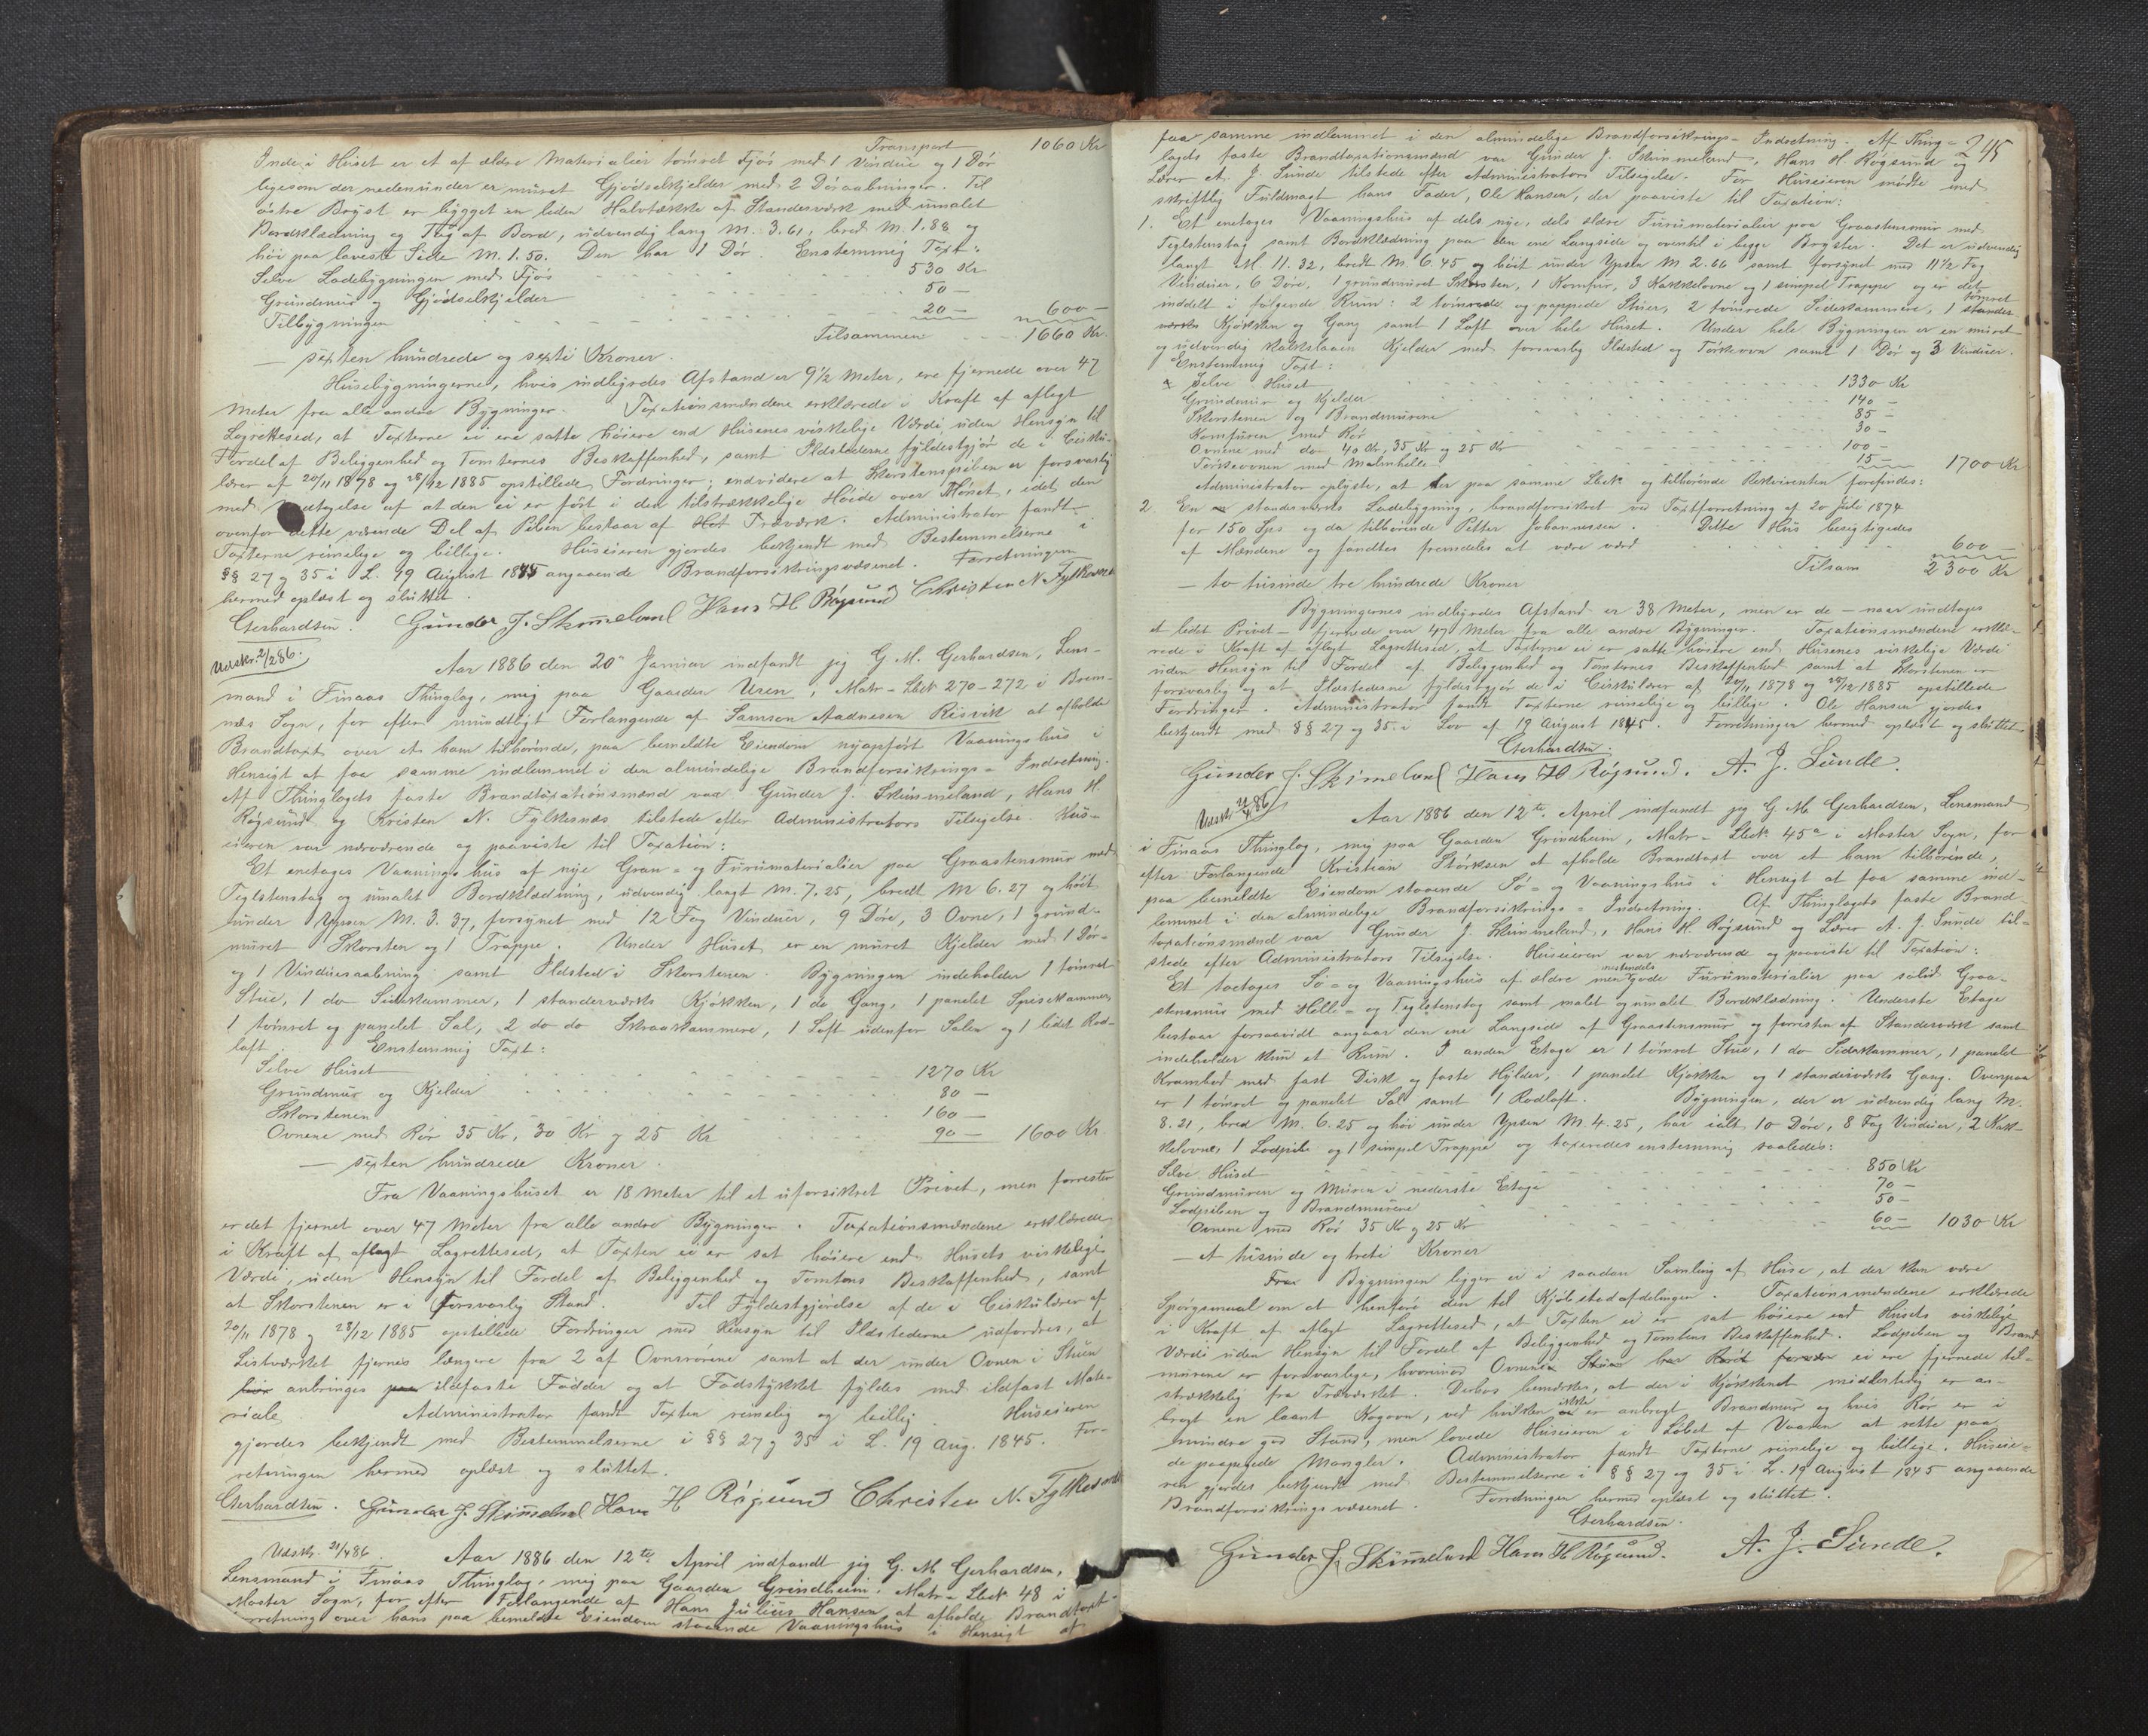 Transport 1060 Kr
Inde i Huset er et af ældre Materialier tømret Fjøs med 1 Vindue og 1 Dør
ligesom der nedenunder er muret Gjødselkjelder med 2 Døraabninger. Til
østre Bryst er bygget en liden Halvtækkte af Standerværk med umalet
Bordklædning og Tag af Bord, udvendig lang M. 3.61, bred M. 1.88 og
høi paa laveste Side M. 1.50. Den har 1 Dør. Enstemmig Taxt:
Selve Ladebygningen med Fjøs 530 Kr
Grundmur og Gjødselkjelder 50 —
Tilbygningen 20 — 600 —
Tilsammen 1660 Kr.
— sexten hundrede og sexti Kroner.
Husebygningerne, hvis indbyrdes Afstand er 9½ Meter, ere fjernede over 47
Meter fra alle andre Bygninger. Taxationsmændene erklærede i Kraft af aflagt
Lagrettesed, at Taxterne ei ere satte høiere end Husenes virkelige Værdi uden Hensyn til
Fordel af Beliggenhed og Tomternes Beskaffenhed, samt Ildstederne fyldestgjør de i Cirku-
lærer af 20/11 1878 og 28/12 1885 opstillede Fordringer; endvidere at Skorstenspiben er forsvarlig
med Undtagelse af at den ei er ført i den tilstrækkelige Høide over Mønet, idet den
ovenfor dette værende Del af Piben bestaar af Træværk. Administrator fandt
Taxterne rimelige og billige. Huseieren gjordes bekjendt med Bestemmelserne i
§§ 27 og 35 i L. 19 August 1845 angaaende Brandforsikringsvæsenet. Forretningen
hermed oplæst og sluttet.
Gerhardsen. Gunder J. Skimmeland Hans H Røgsund Christen N. Fylkesnes
Udskr. 2/2 86.
Aar 1886 den 20de Januar indfandt jeg G. M. Gerhardsen, Lens-
mand i Finaas Thinglag, mig paa Gaarden Uren, Matr-Løbe№ 270-272 i Brem-
næs Sogn, for efter mundtligt Forlangende af Samson Aadnesen Risvik at afholde
Brandtaxt over et ham tilhørende, paa bemeldte Eiendom nyopført Vaaningshus i
Hensigt at faa samme indlemmet i den almindelige Brandforsikrings-Indretning.
Af Thinglagets faste Brandtaxationsmænd var Gunder J. Skimmeland, Hans H.
Røgsund og Kristen N. Fylkesnæs tilstede efter Administrators Tilsigelse. Hus-
eieren var nærværende og paaviste til Taxation:
Et enetages Vaaningshus af nye Gran- og Furumaterialier paa Graastensmur med
Teglstenstag og umalet Bordklædning, udvendig langt M. 7.25, bredt M 6.27 og høit
under Upsen M. 3.37, forsynet med 12 Fag Vinduer, 9 Døre, 3 Ovne, 1 grund-
muret Skorsten og 1 Trappe. Under Huset er en muret Kjelder med 1 Dør-
og 1 Vinduesaabning samt Ildsted i Skorstenen. Bygningen indeholder 1 tømret
Stue, 1 do Sidekammer, 1 standerværks Kjøkken, 1 do Gang, 1 panelet Spisekammer,
1 tømret og panelet Sal, 2 do do Skraakammere, 1 Loft udenfor Salen og 1 lidet Rod-
loft. Enstemmig Taxt:
Selve Huset 1270 Kr
Grundmur og Kjelder 80 —
Skorstenen 160 —
Ovnene med Rør 35 Kr, 30 Kr og 25 Kr 90 — 1600 Kr.
— sexten hundrede Kroner.
Fra Vaaningshuset er 18 Meter til et uforsikret Privet, men forresten
er det fjernet over 47 Meter fra alle andre Bygninger. Taxationsmændene erklærede
i Kraft af aflagt Lagrettesed, at Taxten ei er sat høiere end Husets virkelige
Værdi, uden Hensyn til Fordel af Beliggenhed og Tomtens Beskaffenhed, samt
at Skorstenen er i forsvarlig Stand. Til Fyldestgjørelse af de i Cirkulærer af
20/11 1878 og 28/12 1885 opstillede Fordringer med Hensyn til Ildstederne udfordres, at
Listværket fjernes længere fra 2 af Ovnsrørene samt at der under Ovnen i Stuen
anbringes ildfaste Fødder og at Fodstykket fyldes med ildfast Mate-
riale. Administrator fandt Taxten rimelig og billig. Huseieren
gjordes bekjendt med Bestemmelserne i §§ 27 og 35 i L. 19 Aug. 1845. For-
retningen hermed oplæst og sluttet.
Gerhardsen. Gunder J. Skimmeland Hans H Røgsund Christen N. Fylkesnes
Udskr. 21/4 86.
Aar 1886 den 12te April indfandt jeg G. M Gerhardsen,
Lensmand i Finaas Thinglag, mig paa Gaarden Grindheim, Matr-Løbe№ 48 i
Moster Sogn, for efter Forlangende af Hans Julius Hansen at afholde Brandtaxt-
forretning over hans paa bemeldte Eiendom staaende Vaaningshus i Hensigt at
245
faa samme indlemmet i den almindelige Brandforsikrings-Indretning. Af Thing-
lagets faste Brandtaxationsmænd var Gunder J. Skimmeland, Hans H. Røgsund og
Lærer A. J. Sunde tilstede efter Administrators Tilsigelse. For Huseieren mødte med
skriftlig Fuldmagt hans Fader, Ole Hansen, der paaviste til Taxation:
1. Et enetages Vaaningshus af dels nye, dels ældre Furumaterialier paa Graastensmur med
Teglstenstag samt Bordklædning paa den ene Langside og oventil i begge Bryster. Det er udvendig
langt M. 11.32, bredt M. 6.45 og høit under Upsen M. 2.66 samt forsynet med 11½ Fag
Vinduer, 6 Døre, 1 grundmuret Skorsten, 1 Komfur, 3 Kakkelovne og 1 simpel Trappe og er det
inddelt i følgende Rum: 2 tømrede og pappede Stuer, 2 tømrede Sidekammere, 1 stander- tømret
værks Kjøkken og Gang samt 1 Loft over hele Huset. Under hele Bygningen er en muret
og udvendig kalkslaaen Kjelder med forsvarlig Ildsted og Tørkeovn samt 1 Dør og 3 Vinduer.
Enstemmig Taxt:
Selve Huset 1330 Kr
Grundmur og Kjelder 140 —
Skorstenen og Brandmurene 85 —
Komfuren med Rør 30 —
Ovnene med do 40 Kr, 35 Kr og 25 Kr 100 —
Tørkeovnen med Malmhelle 15 — 1700 Kr
Administrator oplyste, at der paa samme Løbe№ og tilhørende Rekvirenten forefindes:
2. En standerværks Ladebygning, brandforsikret ved Taxtforretning af 20 Juli 1874
for 150 Sps og da tilhørende Petter Johannessen. Dette Hus besigtigedes
af Mændene og fandtes fremdeles at være værd 600 —
Tilsam 2300 Kr
— to tusinde tre hundrede Kroner
Bygningernes indbyrdes Afstand er 38 Meter, men er de — naar undtages
et lidet Privet — fjernede over 47 Meter fra alle andre Bygninger. Taxationsmændene erklæ-
rede i Kraft af aflagt Lagrettesed, at Taxterne ei er satte høiere end Husenes virkelige Værdi
uden Hensyn til Fordel af Beliggenhed og Tomternes Beskaffenhed samt at Skorstenen er
forsvarlig og at Ildstederne fyldestgjør de i Cirkulærer af 20/11 1878 og 28/12 1885 opstillede
Fordringer. Administrator fandt Taxterne rimelige og billige. Ole Hansen gjordes
bekjendt med §§ 27 og 35 i Lov af 19 August 1845. Forretningen hermed oplæst og sluttet.
Gerhardsen.
Gunder J. Skimeland Hans H Røgsund. A. J. Sunde.
Udskr. 21/4 86
Aar 1886 den 12te April indfandt jeg G M Gerhardsen, Lensmand
i Finaas Thinglag, mig paa Gaarden Grindheim, Matr-Løbe№ 45a i Moster Sogn, for
efter Forlangende Kristian Størksen at afholde Brandtaxt over et ham tilhørende,
paa bemeldte Eiendom staaende Sø- og Vaaningshus i Hensigt at faa samme ind-
lemmet i den almindelige Brandforsikrings-Indretning. Af Thinglagets faste Brand-
taxationsmænd var Gunder J. Skimmeland, Hans H Røgsund og Lærer A. J. Sunde til-
stede efter Administrators Tilsigelse. Huseieren var nærværende og paaviste til Taxation:
Et toetages Sø- og Vaaningshus af ældre men mestendels gode Furumaterialier paa solid Graa-
stensmur med Helle- og Teglstenstag samt malet og umalet Bordklædning. Underste Etage
bestaar forsaavidt angaar den ene Langside af Graastensmur og forresten af Standerværk samt
indeholder kun et Rum. I anden Etage er 1 tømret Stue, 1 do Sidekammer, 1 panelet
Krambod med fast Disk og faste Hylder, 1 panelet Kjøkken og 1 standerværks Gang. Ovenpaa
er 1 tømret og panelet Sal samt 1 Rodloft. Bygningen, der er udvendig lang M.
8.21, bred M. 6.25 og høi under Upsen M. 4.25, har ialt 10 Døre, 8 Fag Vinduer, 2 Kak-
kelovne, 1 Lodpibe og 1 simpel Trappe og taxeredes enstemmig saaledes:
Selve Huset 850 Kr
Grundmuren og Muren i nederste Etage 70 —
Lodpiben og Brandmurene 50 —
Ovnene med Rør 35 Kr og 25 Kr 60 — 1030 Kr
— et tusinde og treti Kroner
Fra Bygningen ligger ei i saadan Samling af Huse, at der kan være
Spørgsmaal om at henføre den til Kjøbstadafdelingen. Taxationsmændene erklærede
i Kraft af aflagt Lagrettesed, at Taxten ei er sat høiere end Husets virkelige
Værdi uden Hensyn til Fordel af Beliggenhed og Tomtens Beskaffenhed. Lodpiben og Brand-
murene er forsvarlige, hvorimod Ovnene ei ere fjernede til-
strækkelig fra Træværket. Derhos bemærkes, at der i Kjøkkenet midlertidig er an-
bragt en laant Kogovn, ved hvilken ikke er anbragt Brandmur og hvis Rør er i
mindre god Stand, men lovede Huseieren i Løbet af Vaaren at rette paa
de paapegede Mangler. Administrator fandt Taxterne rimelige og billige. Huseie-
ren gjordes bekjendt med Bestemmelserne i §§ 27 og 35 i L. 19 August 1845 angaaende
Brandforsikringsvæsenet. Forretningen hermed oplæst og sluttet.
Gerhardsen.
Gunder J. Skimmeland Hans H Røgsund. A. J. Sunde.